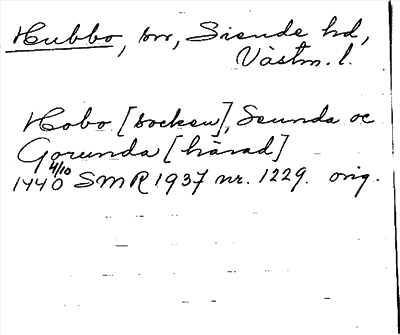 Hubbo, sn, Siende hd,
Västm. l.
Hobo [socken], Seunda oc
Gorunda [härad]
1440 4/10 SMR 1937 nr. 1229. orig.